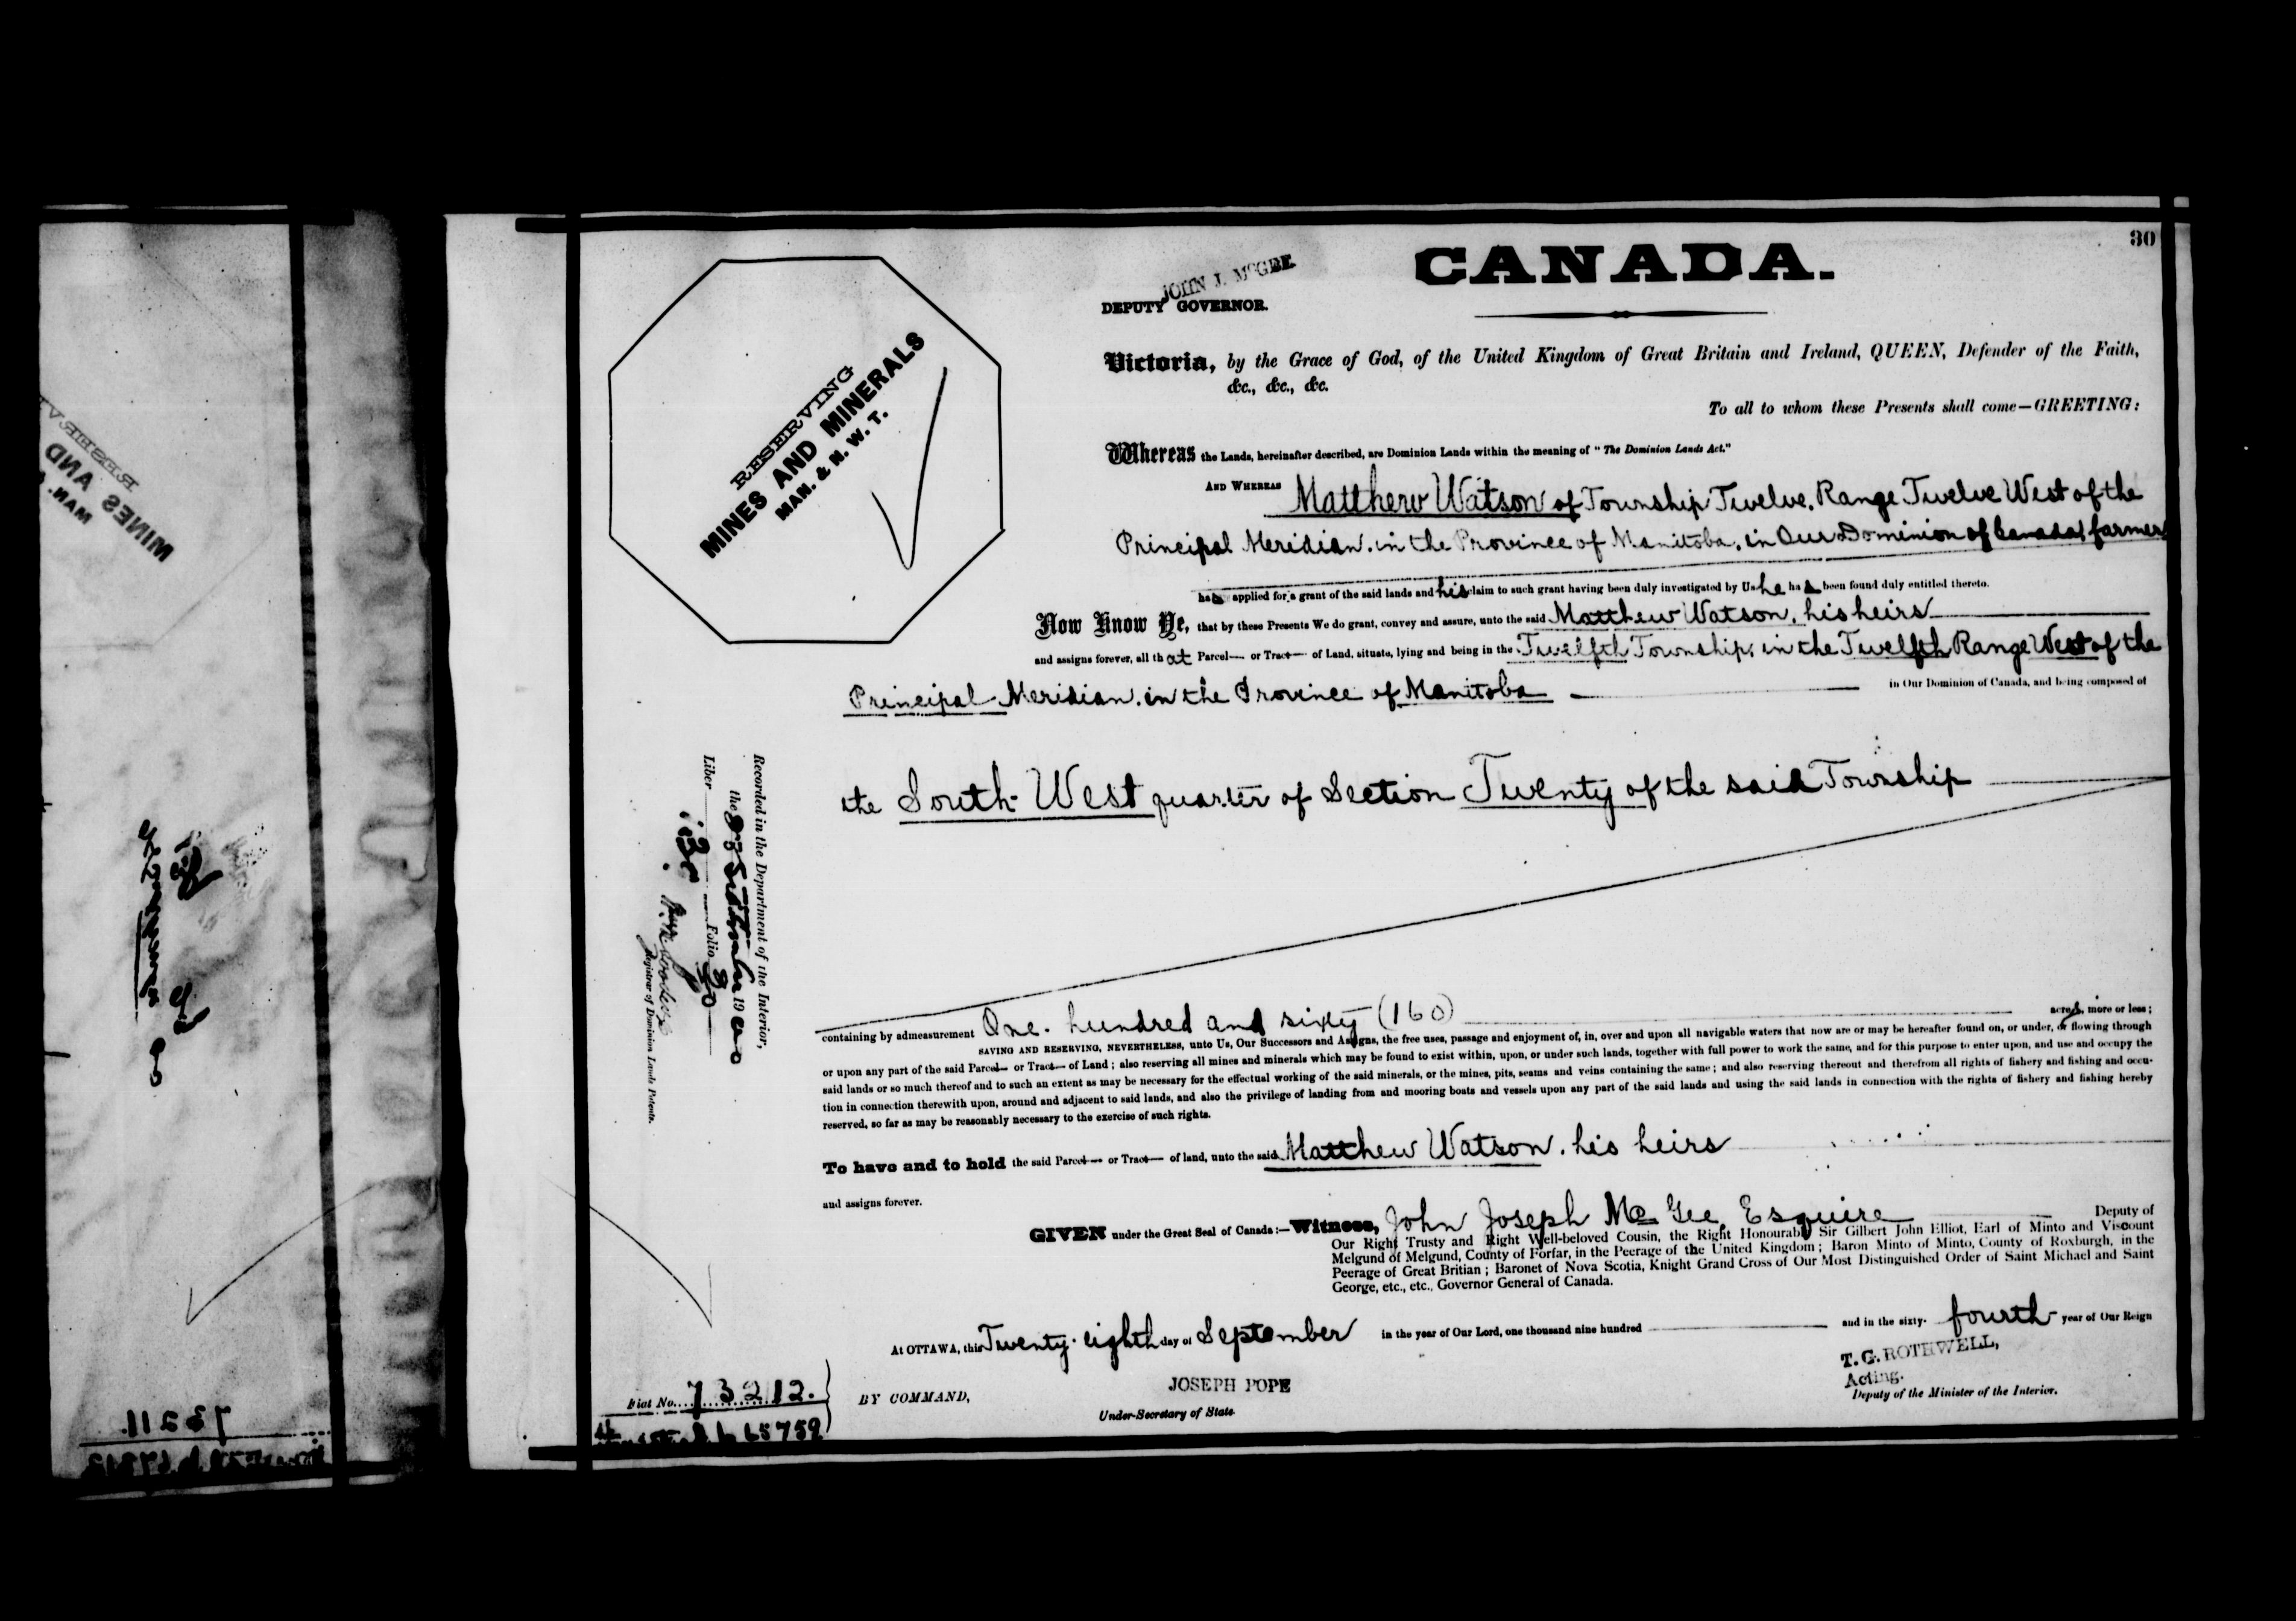 30
CANADA.
JOHN J. McGEE.
DEPUTY GOVERNOR.
Victoria, by the Grace of God, of the United Kingdom of Great Britain and Ireland, QUEEN, Defender of the Faith,
&c., &c., &c.
To all to whom these Presents shall come—GREETING:
RESERVING
MINES AND MINERALS
MAN. & N. W. T.
Whereas the Lands, hereinafter described, are Dominion Lands within the meaning of "The Dominion Lands Act."
AND WHEREAS Matthew Watson of Township Twelve, Range Twelve West of the
Principal Meridian, in the Province of Manitoba, in Our Dominion of Canada, farmer
has applied for a grant of the said lands and his claim to such grant having been duly investigated by Us he has been found duly entitled thereto.
Now Know Ye, that by these Presents We do grant, convey and assure, unto the said Matthew Watson, his heirs
and assigns forever, all that Parcel— or Tract— of Land, situate, lying and being in the Twelfth Township, in the Twelfth Range West of the
Principal Meridian, in the Province of Manitoba — in Our Dominion of Canada, and being composed of
the South-West quarter of Section Twenty of the said Township
Recorded in the Department of the Interior,
the September 19
Liber 135 Folio 30
Registrar of Dominion Lands Patents.
containing by admeasurement One hundred and sixty (160) acres, more or less;
SAVING AND RESERVING, NEVERTHELESS, unto Us, Our Successors and Assigns, the free uses, passage and enjoyment of, in, over and upon all navigable waters that now are or may be hereafter found on, or under, or flowing through
or upon any part of the said Parcel— or Tract— of Land; also reserving all mines and minerals which may be found to exist within, upon, or under such lands, together with full power to work the same, and for this purpose to enter upon, and use and occupy the
said lands or so much thereof and to such an extent as may be necessary for the effectual working of the said minerals, or the mines, pits, seams and veins containing the same; and also reserving thereout and therefrom all rights of fishery and fishing and occu-
tion in connection therewith upon, around and adjacent to said lands, and also the privilege of landing from and mooring boats and vessels upon any part of the said lands and using the said lands in connection with the rights of fishery and fishing hereby
reserved, so far as may be reasonably necessary to the exercise of such rights.
To have and to hold the said Parcel— or Tract— of land, unto the said Matthew Watson, his heirs
and assigns forever.
GIVEN under the Great Seal of Canada:—Witness, John Joseph McGee, Esquire Deputy of
Our Right Trusty and Right Well-beloved Cousin, the Right Honourable Sir Gilbert John Elliot, Earl of Minto and Viscount
Melgund of Melgund, County of Forfar, in the Peerage of the United Kingdom; Baron Minto of Minto, County of Roxburgh, in the
Peerage of Great Britian; Baronet of Nova Scotia, Knight Grand Cross of Our Most Distinguished Order of Saint Michael and Saint
George, etc., etc., Governor General of Canada.
At OTTAWA, this Twenty-eighth day of September in the year of Our Lord, one thousand nine hundred — and in the sixty-fourth year of Our Reign
T. G. ROTHWELL,
Acting.
Deputy of the Minister of the Interior.
BY COMMAND,
JOSEPH POPE
Under-Secretary of State.
Fiat No. 73212.
65759
73211